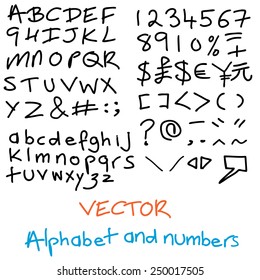 ABCDEF
GHIJKL
MNOPQR
STUVWX
YZ&#:;
abcdefghij
klmnopqrs
tuvwxyz
1234567
8910%=+
$£$€¥元
[]<>()
?@
\/◁▷
VECTOR
Alphabet and numbers
shutterstock.com · 250017505